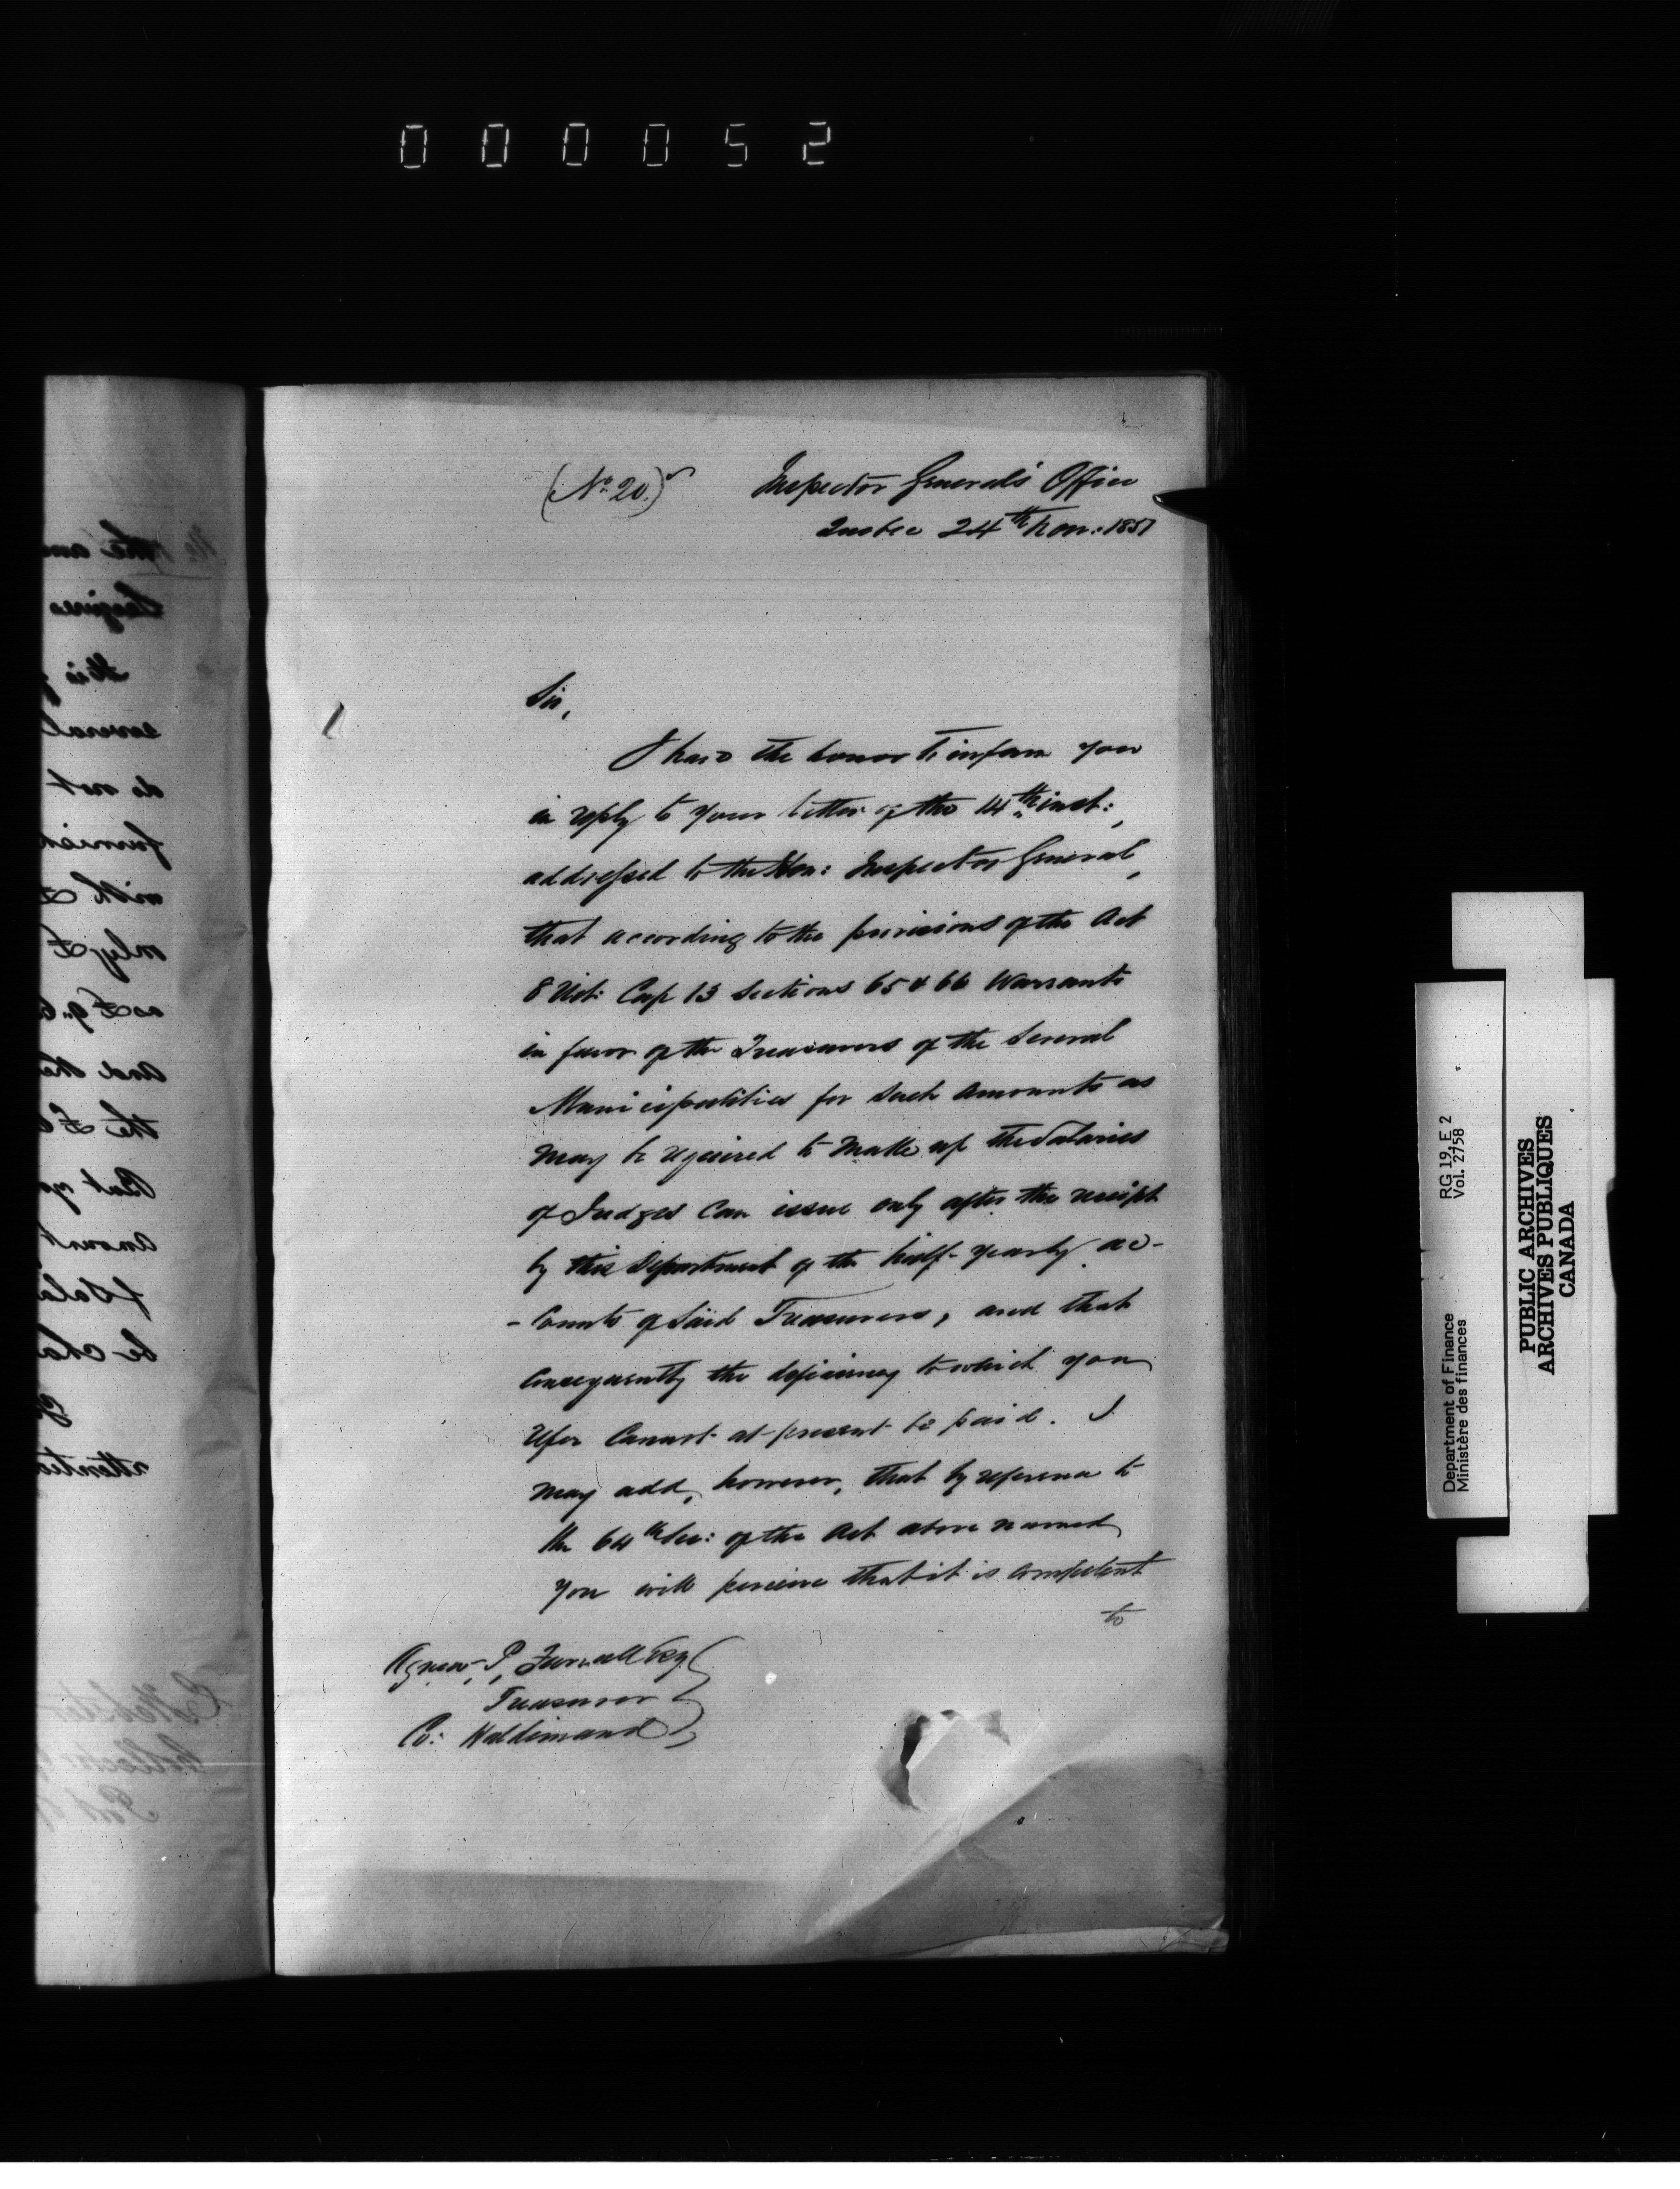 000052
(No. 20.)
Inspector General's Office
Quebec 24th Nov: 1851
Sir,
I have the honor to inform you
in reply to your letter of the 14th inst:,
addressed to the Hon: Inspector General,
that according to the provisions of the Act
8 Vict: Cap 13 Sections 65 & 66 Warrants
in favor of the Treasurers of the Several
Municipalities for such amounts as
may be required to make up the Salaries
of Judges can issue only after the receipt
by this Department of the half-yearly ac-
-counts of said Treasurers, and that
consequently the deficiency to which you
refer cannot at present be paid. I
may add, however, that by reference to
the 64th Sec: of the Act above named
you will perceive that it is competent
to
Agnew P. Farrell Esq
Treasurer
Co: Haldimand
RG 19, E 2
Vol. 2758
Department of Finance
Ministère des finances
PUBLIC ARCHIVES
ARCHIVES PUBLIQUES
CANADA